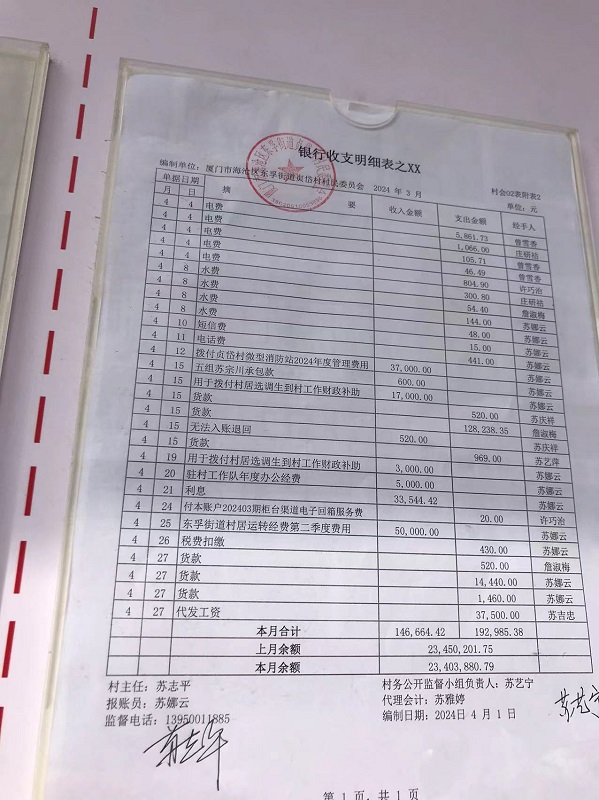 银行收支明细表之XX
编制单位: 厦门市海沧区东孚街道贞岱村村民委员会 2024 年 3 月 村会02表附表2
单位: 元
单据日期 摘 要 收入金额 支出金额 经手人
月 日
4 4 电费 5,861.73 曾雪香
4 4 电费 1,066.00 庄研培
4 4 电费 105.71 曾雪香
4 4 电费 46.49 曾雪香
4 4 电费 804.90 许巧治
4 8 水费 300.80 庄研培
4 8 水费 54.40 詹淑梅
4 8 水费 144.00 苏娜云
4 8 水费 48.00 苏娜云
4 10 短信费 15.00 苏娜云
4 11 电话费 441.00 苏娜云
4 12 拨付贞岱村微型消防站2024年度管理费用 37,000.00 苏娜云
4 15 五组苏宗川承包款 600.00 苏娜云
4 15 用于拨付村居选调生到村工作财政补助 17,000.00 苏娜云
4 15 货款 520.00 苏庆祥
4 15 货款 128,238.35 詹淑梅
4 15 无法入账退回 520.00 苏庆祥
4 15 货款 969.00 苏艺萍
4 19 用于拨付村居选调生到村工作财政补助 3,000.00 苏娜云
4 20 驻村工作队年度办公经费 5,000.00 苏娜云
4 21 利息 33,544.42 苏娜云
4 24 付本账户202403期柜台渠道电子回箱服务费 20.00 许巧治
4 25 东孚街道村居运转经费第二季度费用 50,000.00 苏娜云
4 26 税费扣缴 430.00 苏娜云
4 27 货款 520.00 詹淑梅
4 27 货款 14,440.00 苏娜云
4 27 货款 1,460.00 苏娜云
4 27 代发工资 37,500.00 苏吉忠
本月合计 146,664.42 192,985.38
上月余额 23,450,201.75
本月余额 23,403,880.79
村主任: 苏志平 村务公开监督小组负责人: 苏艺宁
报账员: 苏娜云 代理会计: 苏雅婷
监督电话: 13950011885 编制日期: 2024日 4 月 1 日
第 1 页, 共 1 页